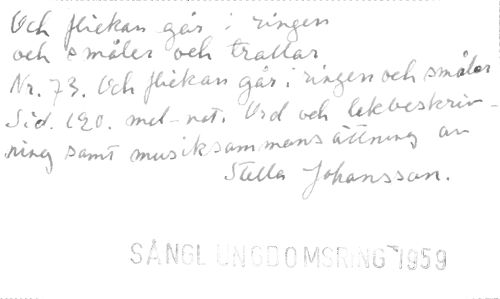 Och flickan går i ringen
och småler och trallar
Nr. 73. Och flickan går i ringen och småler
Sid. 190. mel-not. Ord och lekbeskriv-
ning samt musiksammansättning av
Stella Johansson.
SÅNGL UNGDOMSRING 1959